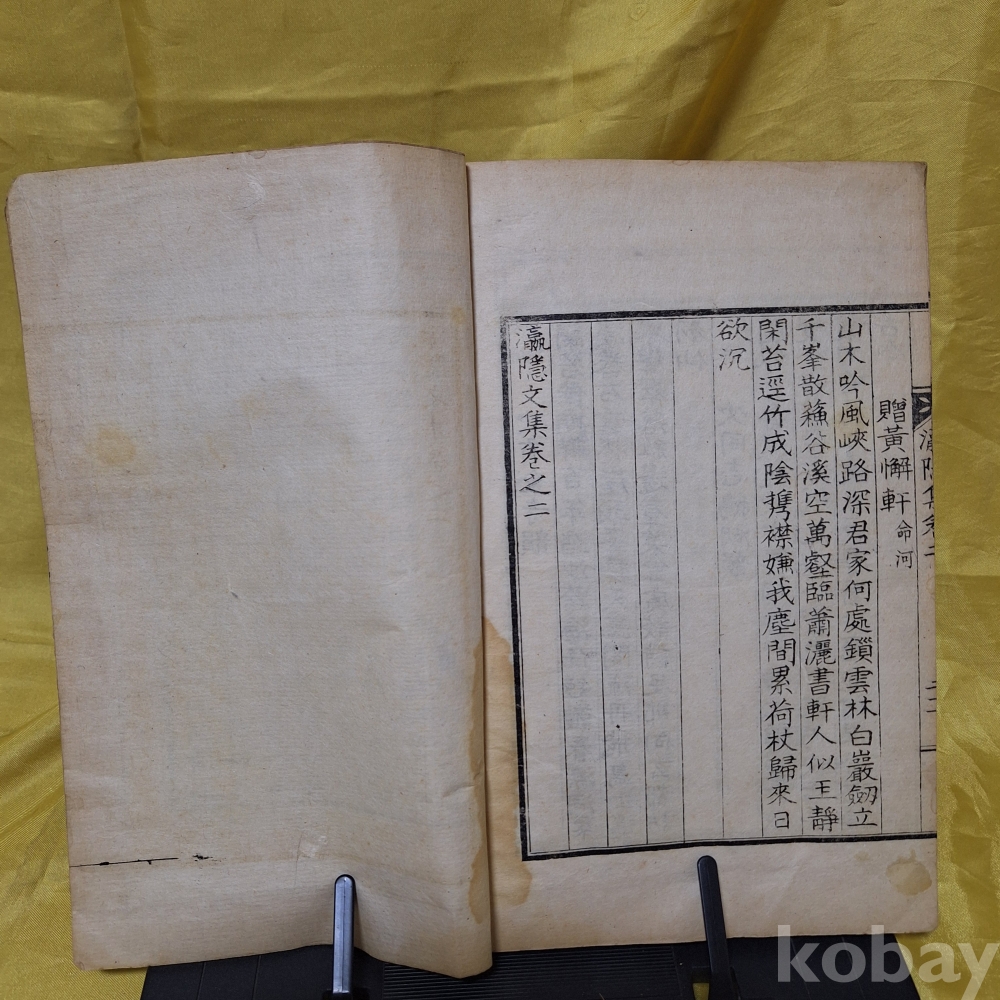 贈黃懈軒命河
山木吟風峽路深君家何處鎖雲林白巖劒立
千峯散蘓谷溪空萬壑臨蕭灑書軒人似玉靜
閑苔逕竹成陰携襟嫌我塵間累荷杖歸來日
欲沉
瀛隱文集卷之二
kobay